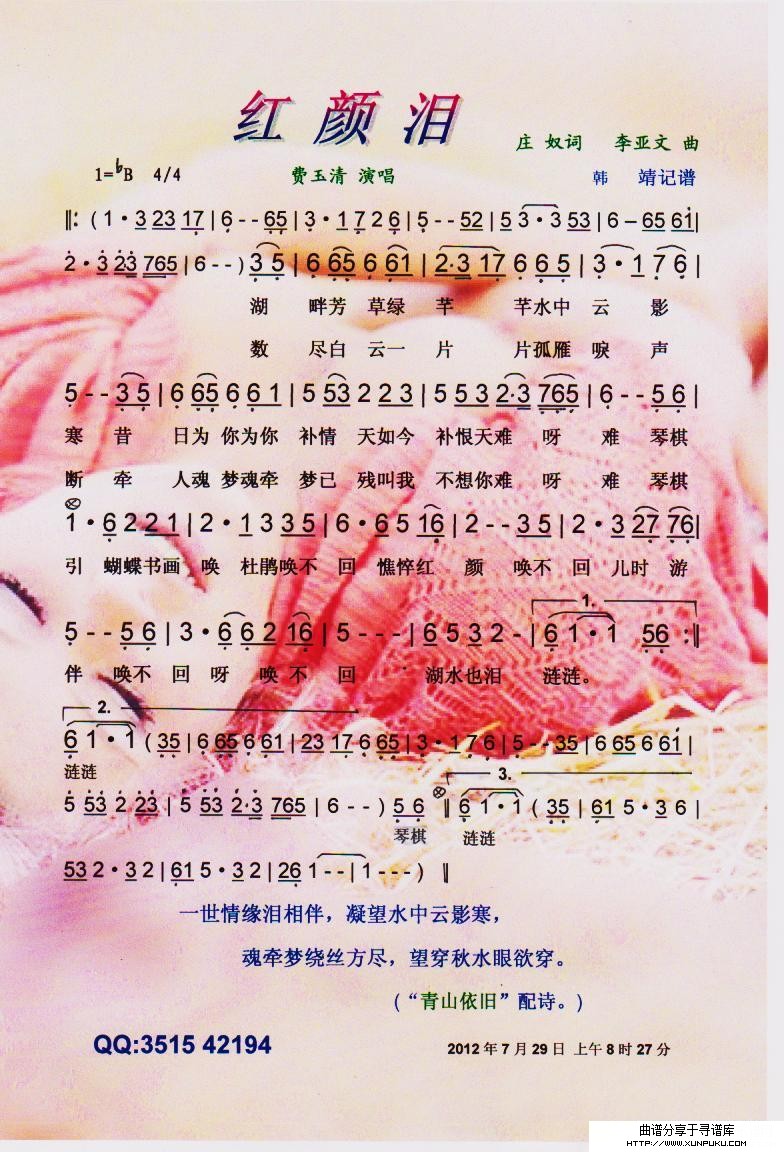 红 颜 泪
庄 奴词 李亚文 曲
1=♭B 4/4 费玉清 演唱 韩 靖记谱
‖: ( 1 · 3 23 17 | 6 - - 65 | 3 · 1 7 2 6 | 5 - - 52 | 5 3 · 3 53 | 6 – 65 61 |
2 · 3 23 765 | 6 - - ) 3 5 | 6 65 6 61 | 2·3 17 6 6 5 | 3 · 1 7 6 |
湖 畔芳 草绿 芊 芊水中 云 影
数 尽白 云一 片 片孤雁 唳 声
5 - - 3 5 | 6 65 6 6 1 | 5 53 2 2 3 | 5 5 3 2·3 765 | 6 - - 5 6 |
寒 昔 日为 你为你 补情 天如今 补恨天难 呀 难 琴棋
断 牵 人魂 梦魂牵 梦已 残叫我 不想你难 呀 难 琴棋
1 · 6 2 2 1 | 2 · 1 3 3 5 | 6 · 6 5 16 | 2 - - 3 5 | 2 · 3 27 76 |
引 蝴蝶书画 唤 杜鹃唤不 回 憔悴红 颜 唤不 回 儿时 游
1.
5 - - 5 6 | 3 · 6 6 2 16 | 5 - - - | 6 5 3 2 - | 6 1 · 1 56 :‖
伴 唤不 回 呀 唤 不 回 湖水也泪 涟涟。
2.
6 1 · 1 ( 35 | 6 65 6 61 | 23 17 6 65 | 3 · 1 7 6 | 5 - - 35 | 6 65 6 61 |
涟涟
3.
5 53 2 23 | 5 53 2·3 765 | 6 - - ) 5 6 ‖ 6 1 · 1 ( 35 | 61 5 · 3 6 |
琴棋 涟涟
53 2 · 3 2 | 61 5 · 3 2 | 26 1 - - | 1 - - - ) ‖
一世情缘泪相伴，凝望水中云影寒，
魂牵梦绕丝方尽，望穿秋水眼欲穿。
(“青山依旧”配诗。)
QQ:3515 42194 2012 年 7 月 29 日 上午 8 时 27 分
曲谱分享于寻谱库
HTTP://WWW.XUNPUKU.COM